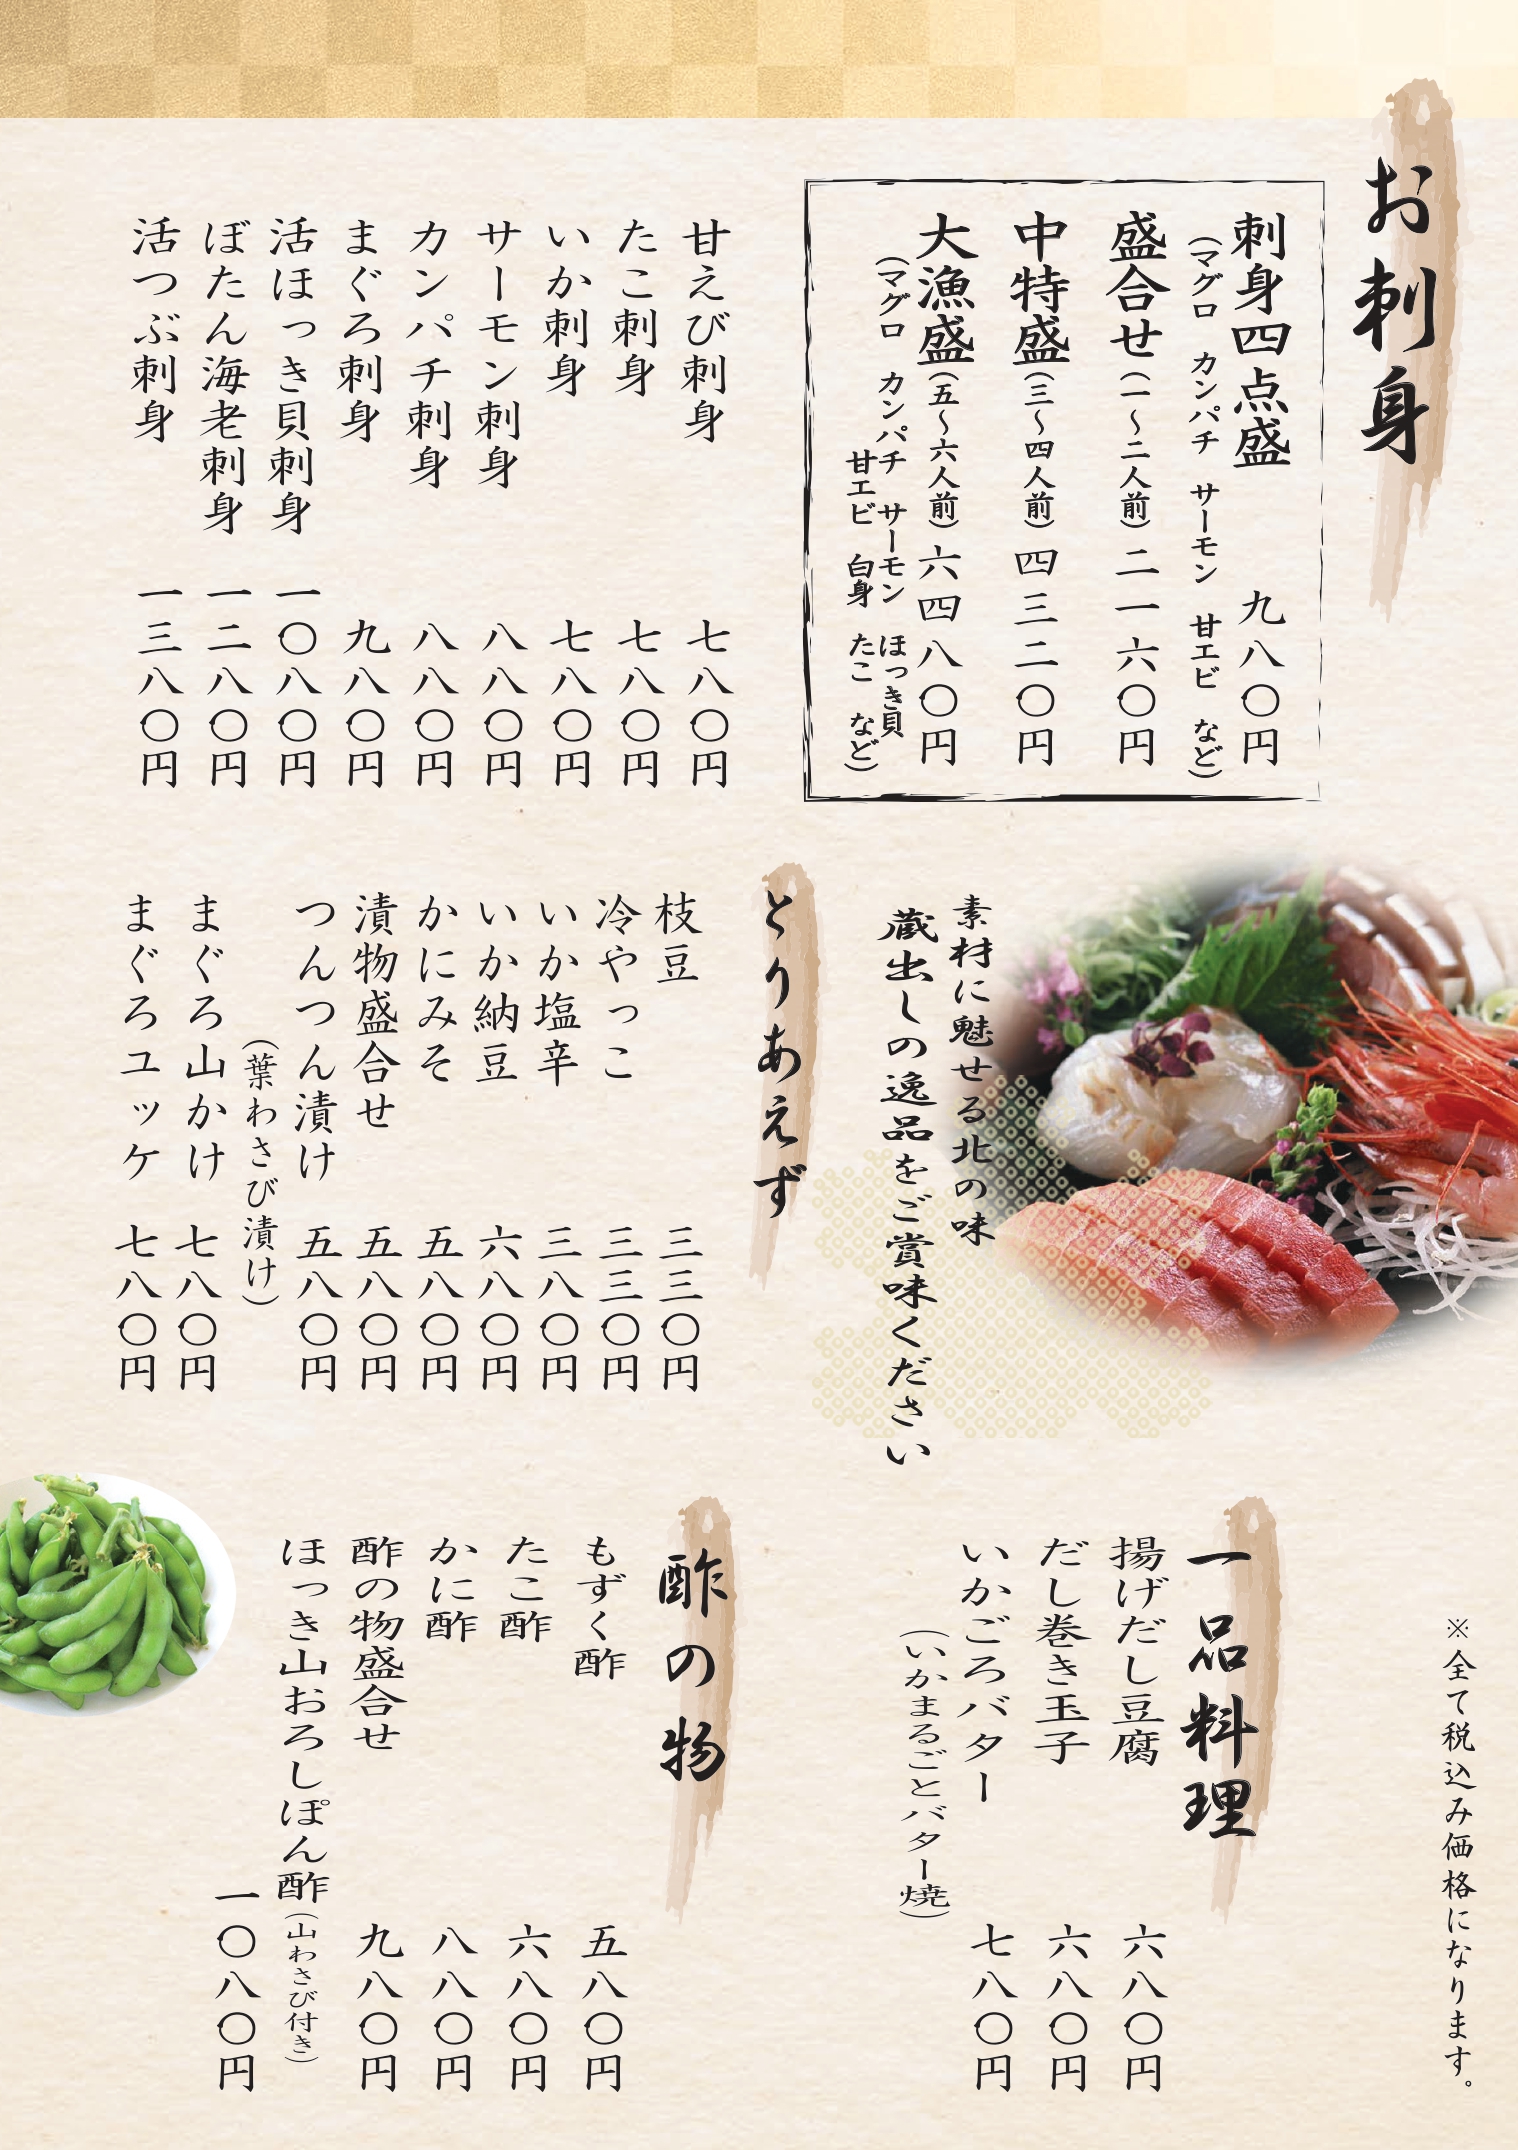 お刺身
刺身四点盛 九八〇円
(マグロ カンパチ サーモン 甘エビ など)
盛合せ(一～二人前) 二一六〇円
中特盛(三～四人前) 四三二〇円
大漁盛(五～六人前) 六四八〇円
(マグロ カンパチ サーモン ほっき貝
甘エビ 白身 たこ など)
甘えび刺身 七八〇円
たこ刺身 七八〇円
いか刺身 七八〇円
サーモン刺身 八八〇円
カンパチ刺身 八八〇円
まぐろ刺身 九八〇円
活ほっき貝刺身 一〇八〇円
ぼたん海老刺身 一二八〇円
活つぶ刺身 一三八〇円
素材に魅せる北の味
蔵出しの逸品をご賞味ください
とりあえず
枝豆 三三〇円
冷やっこ 三三〇円
いか塩辛 三八〇円
いか納豆 六八〇円
かにみそ 五八〇円
漬物盛合せ 五八〇円
つんつん漬け 五八〇円
(葉わさび漬け)
まぐろ山かけ 七八〇円
まぐろユッケ 七八〇円
※全て税込み価格になります。
一品料理
揚げだし豆腐 六八〇円
だし巻き玉子 六八〇円
いかごろバター 七八〇円
(いかまるごとバター焼)
酢の物
もずく酢 五八〇円
たこ酢 六八〇円
かに酢 八八〇円
酢の物盛合せ 九八〇円
ほっき山おろしぽん酢(山わさび付き)
一〇八〇円